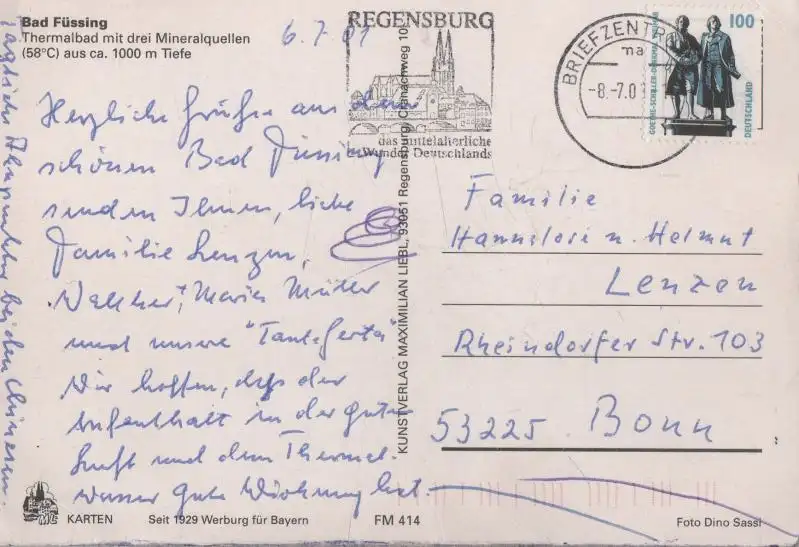 Bad Füssing
Thermalbad mit drei Mineralquellen
(58°C) aus ca. 1000 m Tiefe
6.7.01
Herzliche Grüße aus dem
schönen Bad Füssing
senden Ihnen, liebe
Familie Lenzen,
Walther + Maria Müller
und unsere "Tante Gerta"
Wir hoffen, daß der
Aufenthalt in der guten
Luft und dem Thermal-
wasser gute Wirkung hat.
täglich bei den Chinesen.
REGENSBURG
das mittelalterliche
Wunder Deutschlands
BRIEFZENTR
ma
-8.-7.0
100
GOETHE-SCHILLER-DENKMAL
DEUTSCHLAND
KUNSTVERLAG MAXIMILIAN LIEBL, 93051 Regensburg, Cranachweg 10
Familie
Hannelore u. Helmut
Lenzen
Rheindorfer Str. 103
53225 Bonn
ML
KARTEN
Seit 1929 Werbung für Bayern
FM 414
Foto Dino Sassi